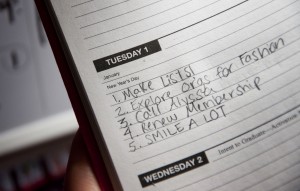 TUESDAY 1
January
New Year's Day
1. Make Lists!
2. Explore Oras for Fashion
3. Call Alyssa
4. Renew Membership
5. SMILE A LOT
WEDNESDAY 2